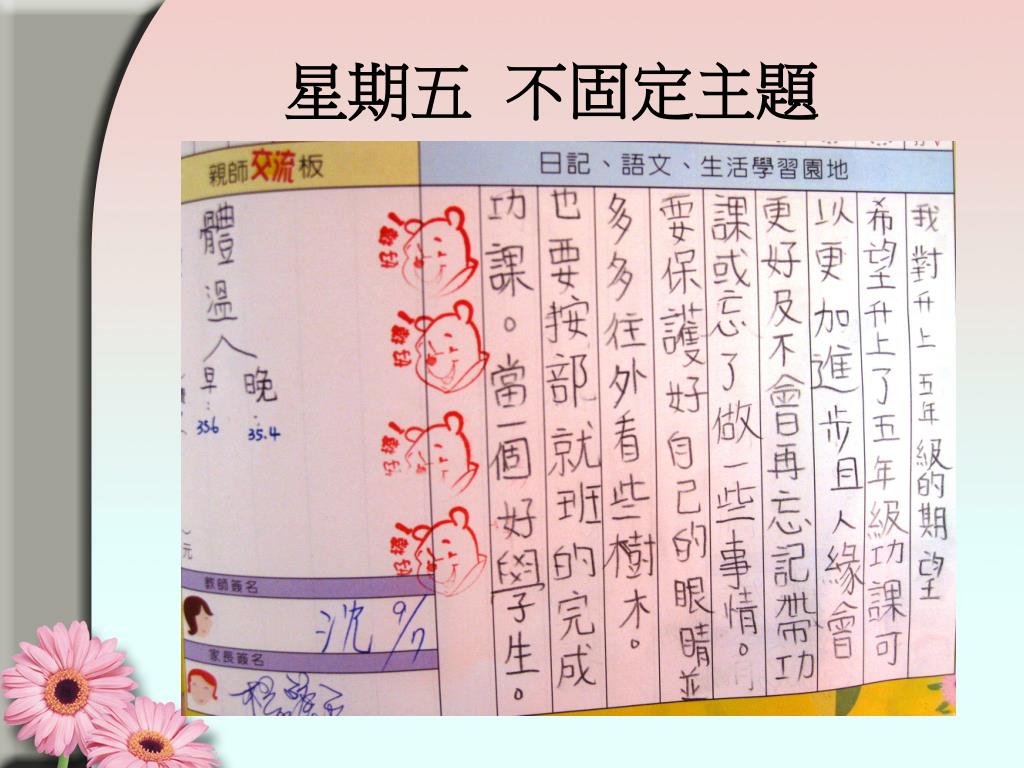 星期五 不固定主題
親師交流板
日記、語文、生活學習園地
我對升上五年級的期望
希望升上了五年級功課可
以更加進步且人緣會
更好及不會再忘記帶功
課或忘了做一些事情。
要保護好自己的眼睛並
多多往外看些樹木。
也要按部就班的完成
功課。當一個好學生。
體溫
早 晚
356 35.4
元
教師簽名
沈 9/7
家長簽名